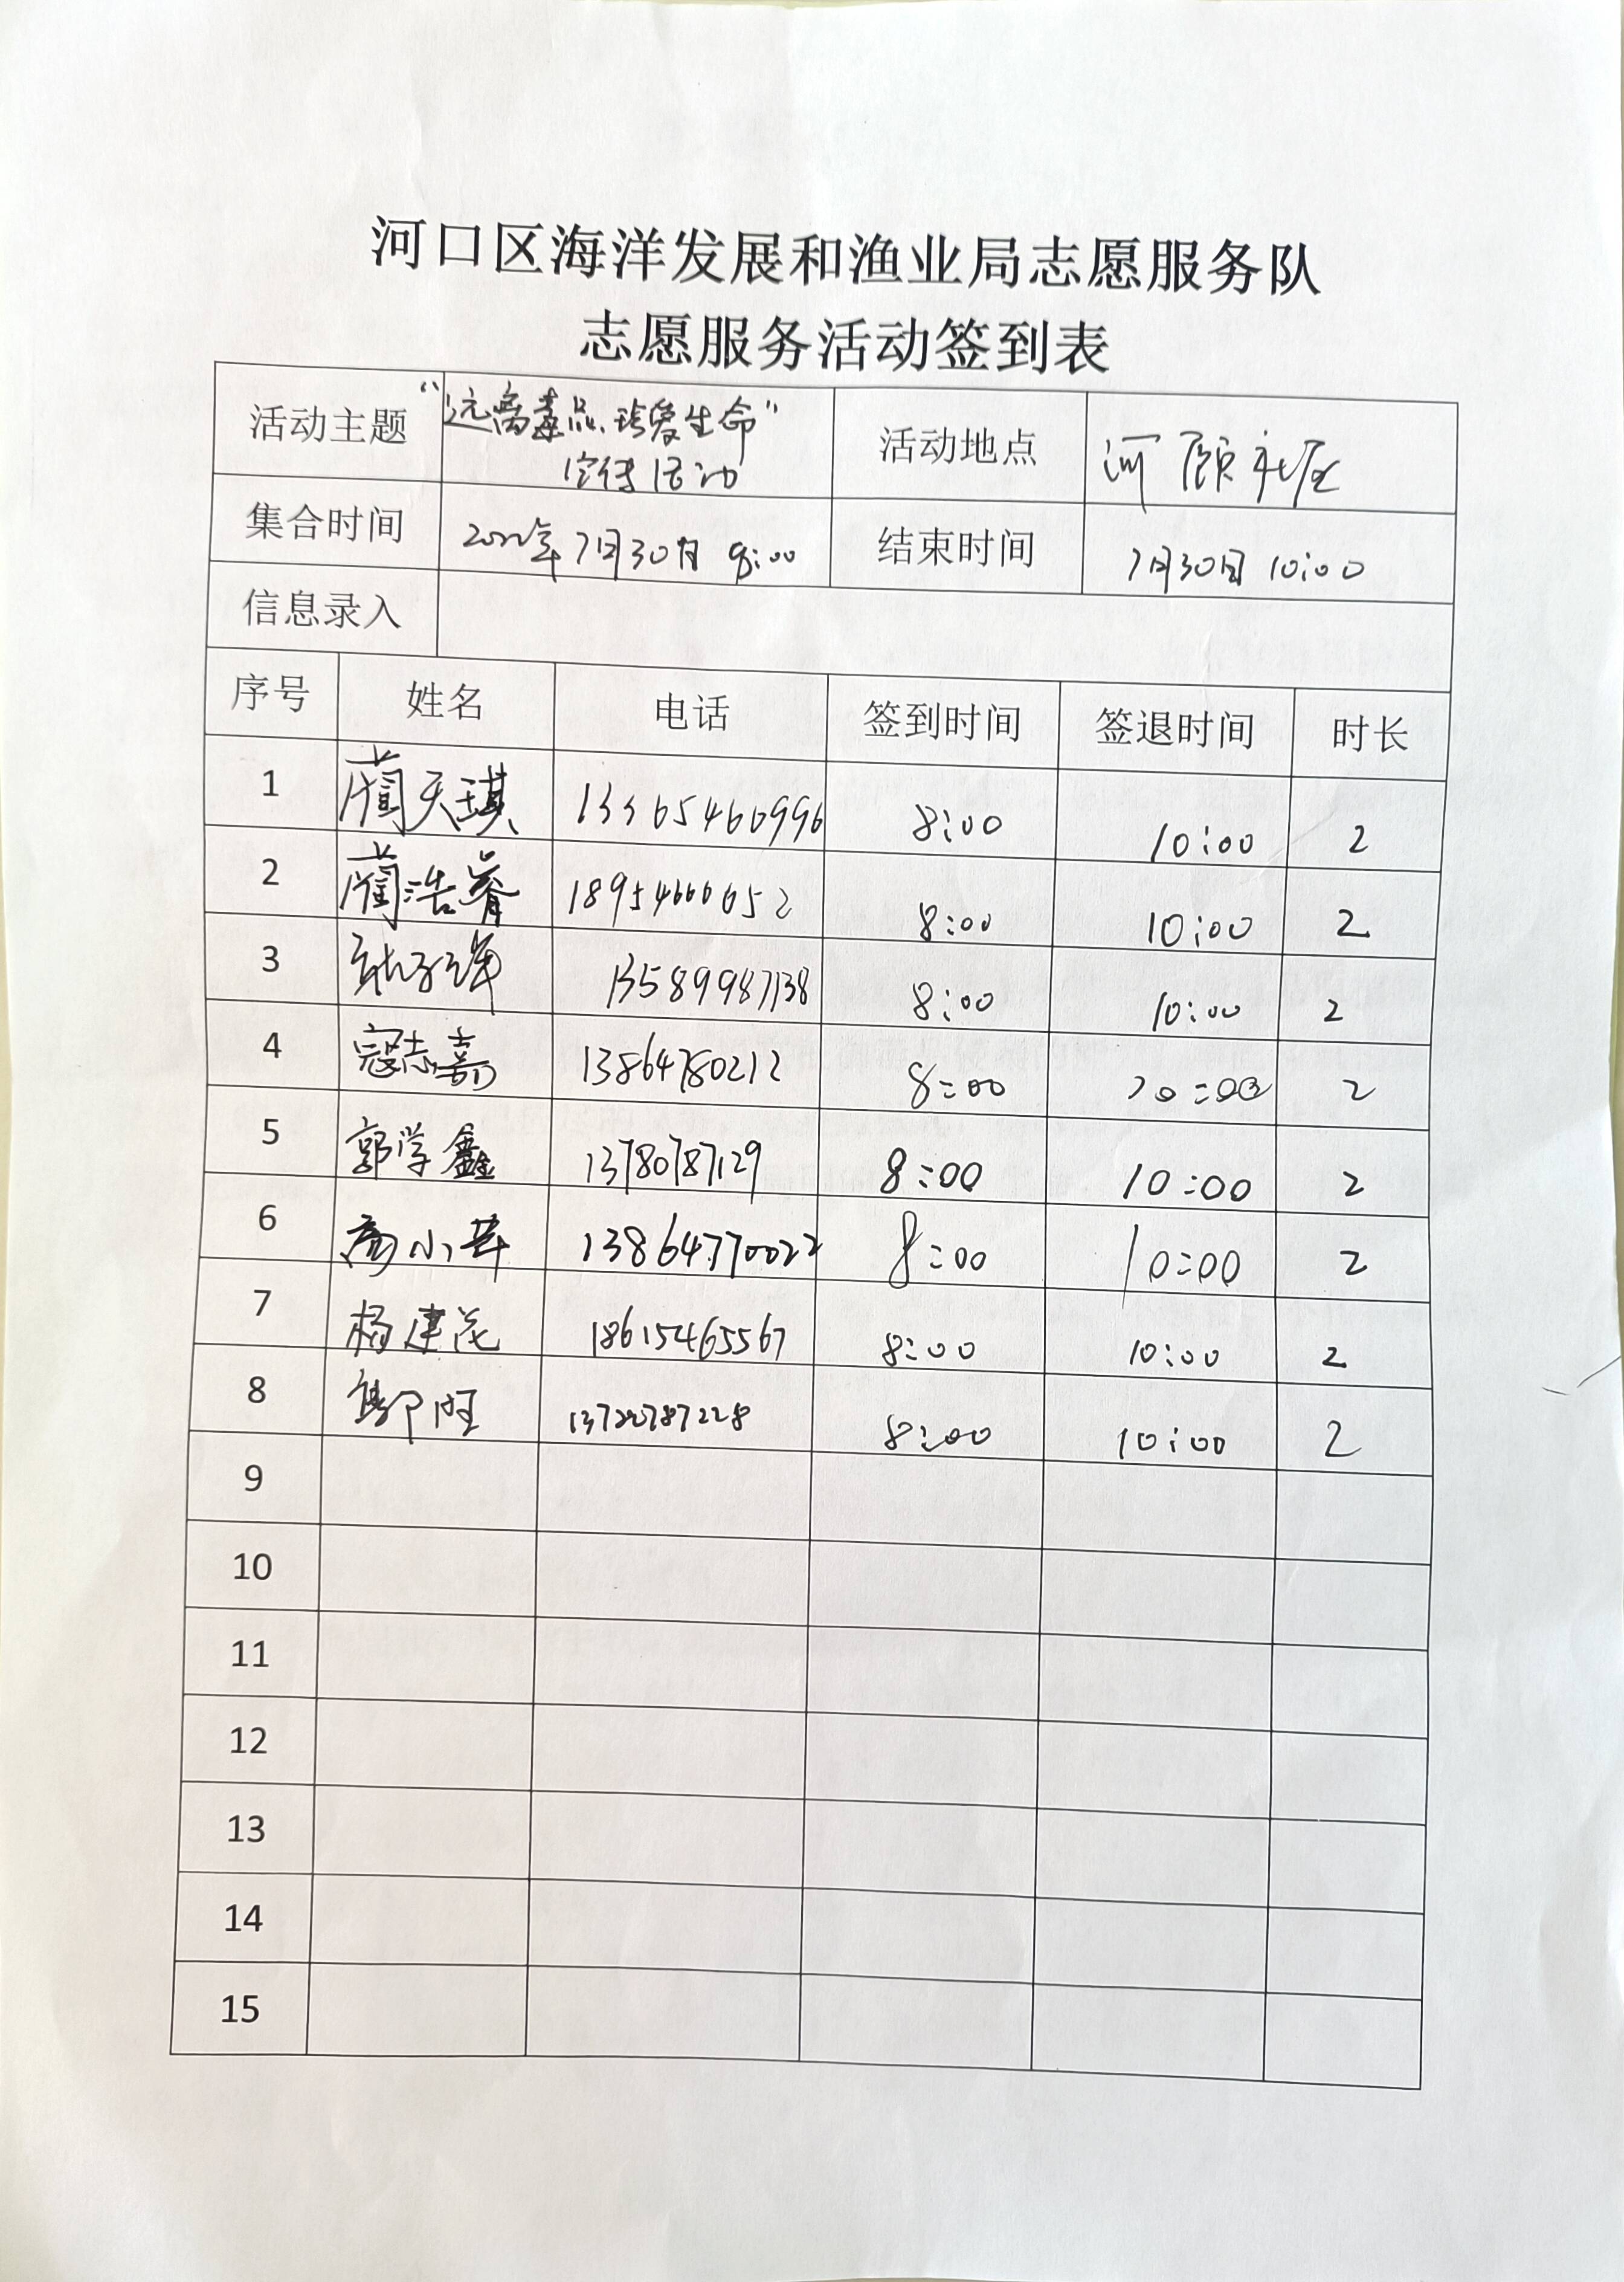 河口区海洋发展和渔业局志愿服务队
志愿服务活动签到表
活动主题 “远离毒品、珍爱生命” 活动地点 河颐社区
宣传活动
集合时间 2022年7月30日 8:00 结束时间 7月30日 10:00
信息录入
序号 姓名 电话 签到时间 签退时间 时长
1 蔺天琪 13365460996 8:00 10:00 2
2 蔺浩睿 18954600652 8:00 10:00 2
3 13589987138 8:00 10:00 2
4 寇志嘉 13864780212 8:00 10:00 2
5 郭学鑫 13780787129 8:00 10:00 2
6 13864770022 8:00 10:00 2
7 杨建花 18615465567 8:00 10:00 2
8 8:00 10:00 2
9
10
11
12
13
14
15